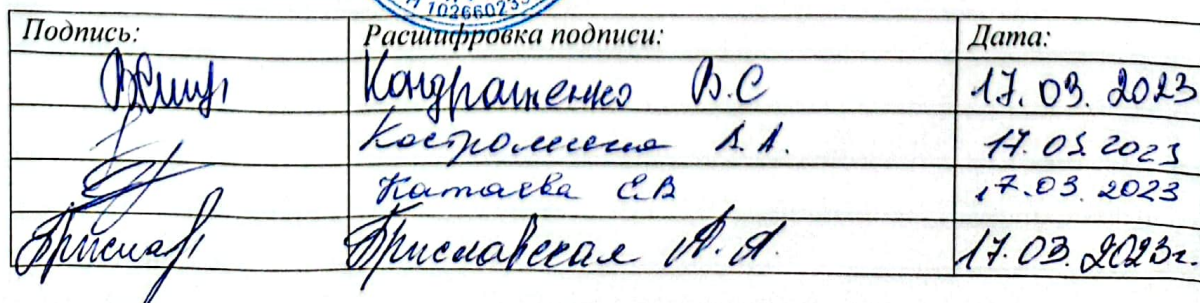 102660233
Подпись: Расшифровка подписи: Дата:
Кондрашенко В.С 17.03.2023
Костромина А.А. 17.03.2023
Катаева Е.В 17.03.2023
А.А. 17.03.2023г.